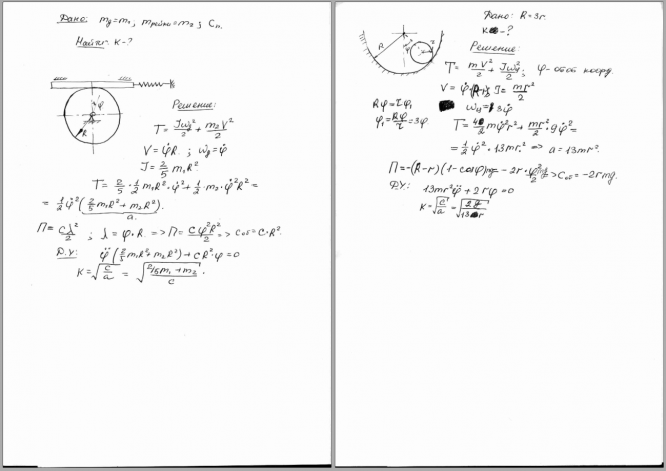 Дано: m_g = m₁, m_рейки = m₂; C_п.
Найти: K-?
φ
R
Решение:
T = Jω_g²/2 + m₂V²/2
V = φ̇R ; ω_g = φ̇
J = 2/5 m₁R².
T = 2/5 · 1/2 m₁R² · φ̇² + 1/2 · m₂ · φ̇²R² =
= 1/2 φ̇² (2/5 m₁R² + m₂R²).
a.
П = cλ²/2 ; λ = φ·R. => П = Cφ²R²/2 => C об = C·R².
Д.У.: φ̈ (2/5 m₁R² + m₂R²) + CR²·φ = 0
K = √(c/a) = √((2/5 m₁ + m₂)/c).
Дано: R = 3r.
K-?
R
φ
Решение:
T = mV²/2 + Jω²/2 ; φ- обоб коорд.
V = φ̇(R-r); J = mr²/2
Rφ = rφ₁
φ₁ = Rφ/r = 3φ
ω = 3φ̇
T = 4/2 mφ̇²r² + mr²/2 · 9φ̇² =
= 1/2 φ̇² · 13mr². => a = 13mr².
П = -(R-r)(1-cosφ)mg = -2r · φ²/2 mg => C об = -2rmg.
Д.У.: 13mr²φ̈ + 2rφ = 0
K = √(c/a) = √(2g/13r)